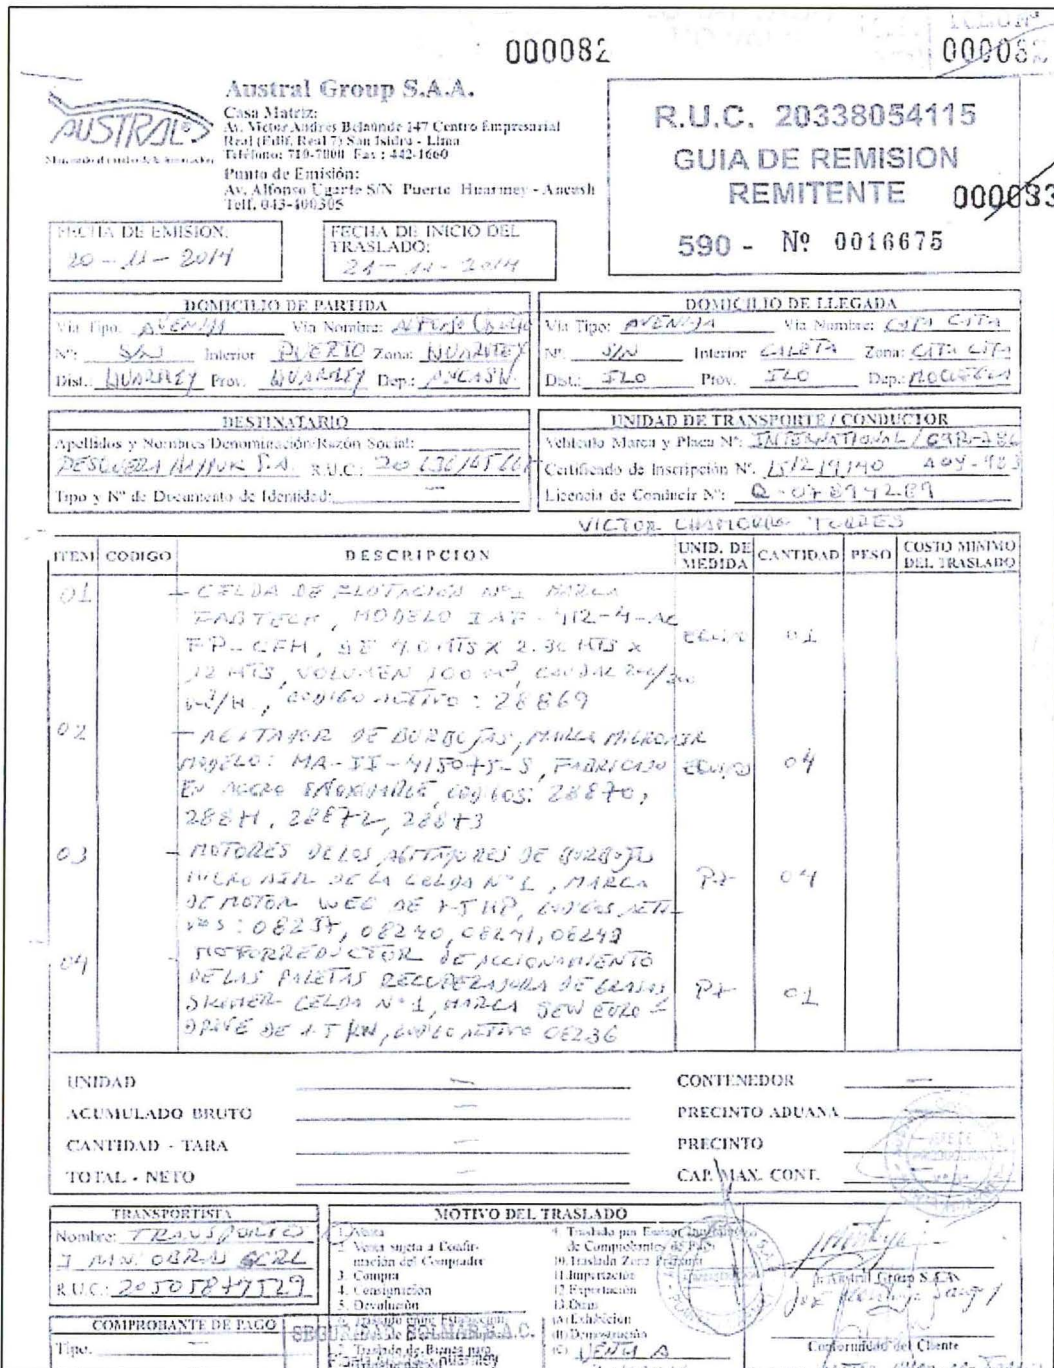 000082
000082
Austral Group S.A.A.
Casa Matriz:
Av. Victor Andres Belaúnde 147 Centro Empresarial
Real (Edif. Real 7) San Isidro - Lima
Teléfono: 710-7000 Fax : 442-1660
Punto de Emisión:
Av. Alfonso Ugarte S/N Puerto Huarmey - Ancash
Telf. 043-400305
AUSTRAL
R.U.C. 20338054115
GUIA DE REMISION
REMITENTE
000033
590 - Nº 0016675
FECHA DE EMISION:
20 - 11 - 2014
FECHA DE INICIO DEL
TRASLADO:
21 - 11 - 2014
DOMICILIO DE PARTIDA
Via Tipo: AVENIDA Via Nombre: ALFONSO UGARTE
Nº: S/N Interior PUERTO Zona: HUARMEY
Dist.: HUARMEY Prov. HUARMEY Dep.: ANCASH
DOMICILIO DE LLEGADA
Via Tipo: AVENIDA Via Nombre: CATA CATA
Nº: S/N Interior CALETA Zona: CATA CATA
Dist.: ILO Prov. ILO Dep.: MOQUEGUA
DESTINATARIO
Apellidos y Nombres Denominación/Razón Social:
PESQUERA HAYDUK S.A. R.U.C.:
Tipo y Nº de Documento de Identidad: —
UNIDAD DE TRANSPORTE / CONDUCTOR
Vehículo Marca y Placa Nº: INTERNATIONAL /
Certificado de Inscripción Nº.
Licencia de Conducir Nº: Q-07894289
VICTOR TORRES
ITEM CODIGO DESCRIPCION UNID. DE MEDIDA CANTIDAD PESO COSTO MINIMO DEL TRASLADO
01 - CELDA DE FLOTACION Nº1 MARCA
FABTECH, MODELO IAF - 412-4-AC
FP-CFH, DE 4.0 MTS X 2.30 MTS X EQUIPO 01
12 MTS, VOLUMEN 100 m³, CAUDAL
m³/H., CODIGO ACTIVO: 28869
02 - AGITADOR DE BURBUJAS, MARCA MICROAIR
MODELO: MA-II-4150+5-S, FABRICADO EQUIPO 04
EN ACERO INOXIDABLE, CODIGOS: 28870,
28871, 28872, 28873
03 - MOTORES DE LOS AGITADORES DE BURBUJAS
MICRO AIR DE LA CELDA Nº1, MARCA PZ 04
DE MOTOR WEG DE 7.5 HP, CODIGOS ACTI-
VOS: 08237, 08240, 08241, 08242
04 - MOTORREDUCTOR DE ACCIONAMIENTO
DE LAS PALETAS RECUPERADORA DE GRASAS PZ 01
SKIMER CELDA Nº1, MARCA SEW EURO-
DRIVE DE 1.5 KW, CODIGO ACTIVO 08236
UNIDAD — CONTENEDOR —
ACUMULADO BRUTO — PRECINTO ADUANA
CANTIDAD - TARA — PRECINTO
TOTAL - NETO — CAP. MAX. CONT.
TRANSPORTISTA
Nombre: TRANSPORTES
Y MANIOBRAS SCRL
R.U.C.: 20505847529
COMPROBANTE DE PAGO
Tipo.
MOTIVO DEL TRASLADO
1. Venta
2. Venta sujeta a Confir-
mación del Comprador
3. Compra
4. Consignación
5. Devolución
9. Traslado por Emisor
de Comprobantes de Pago
10. Traslado Zona Primaria
11. Importación
12. Exportación
13. Otros
(A) Exhibición
(B) Demostración
(C) VENTA A
p. Austral Group S.A.A.
Conformidad del Cliente